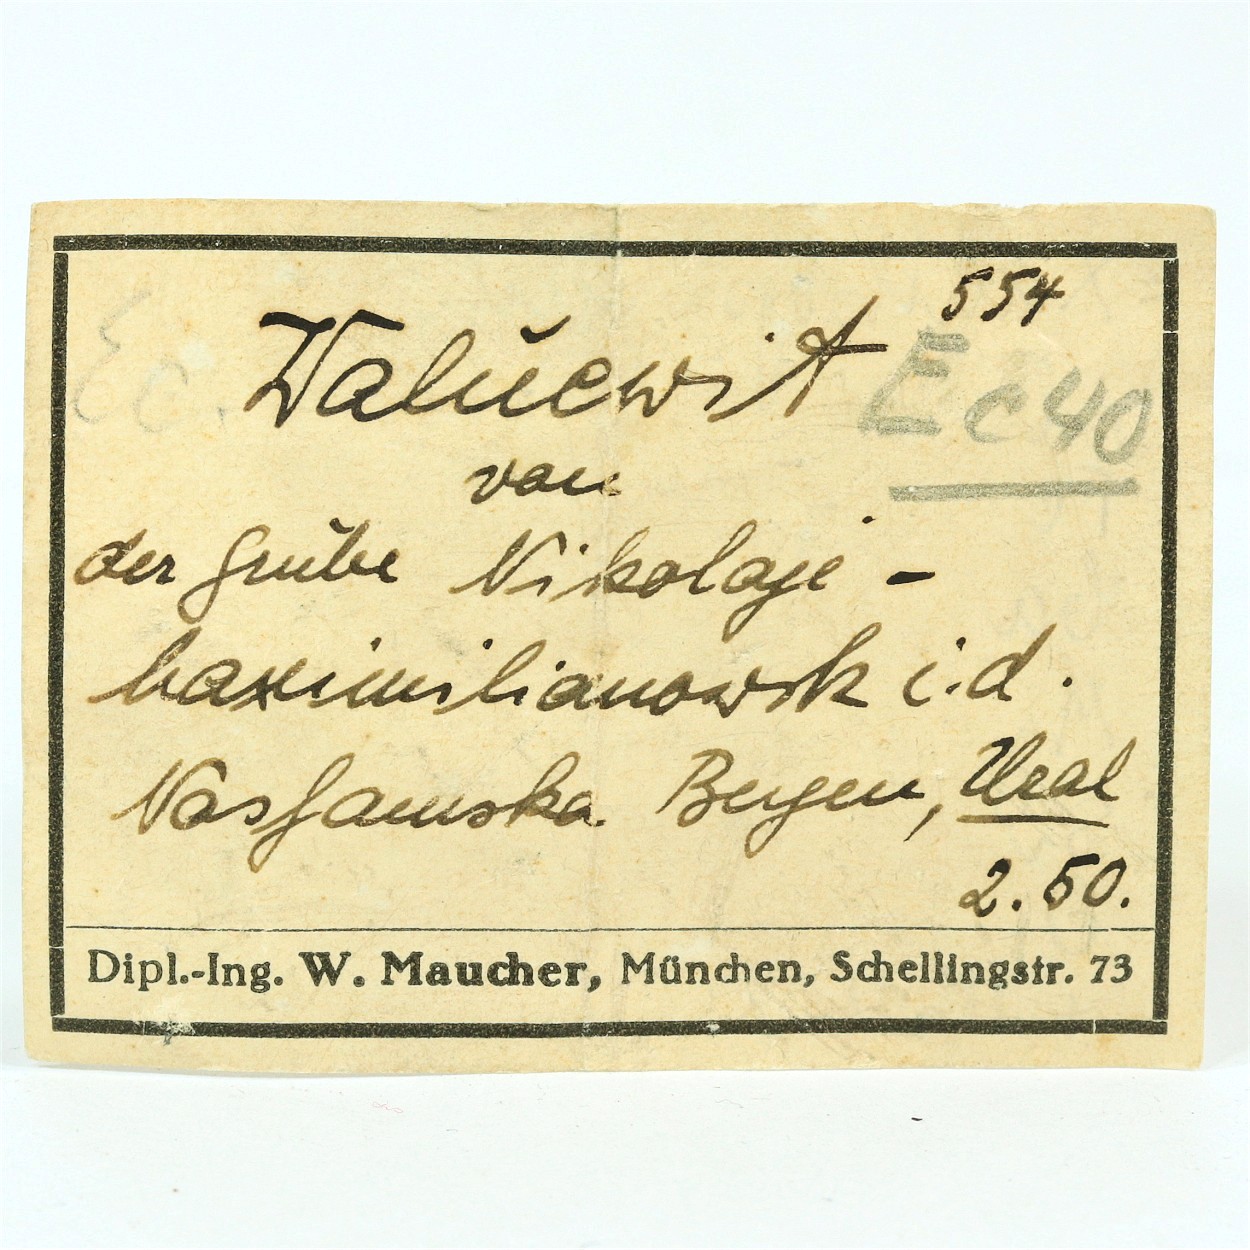 554
Waluewit
Ec40
Ec.
von
der Grube Nikolaje-
Maximilianowsk i.d.
Nasjamska Bergen, Ural
2.50.
Dipl.-Ing. W. Maucher, München, Schellingstr. 73